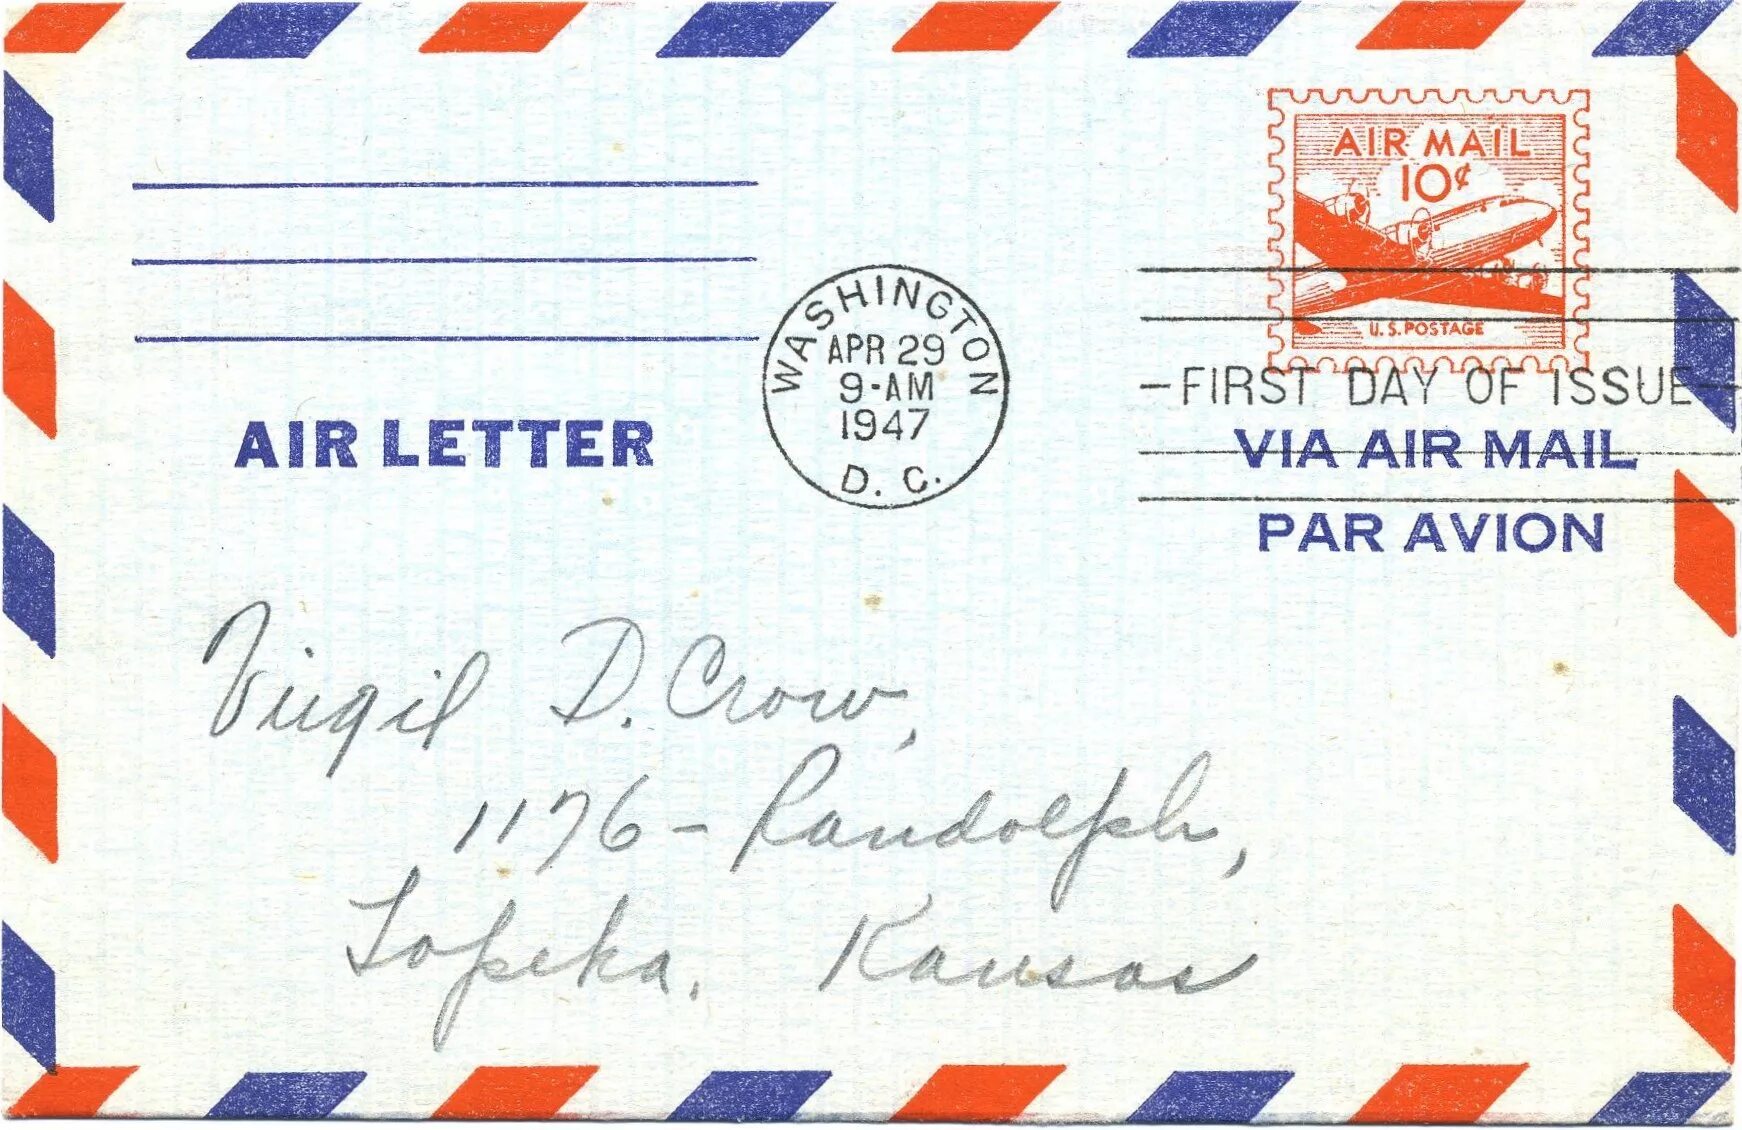 AIR MAIL
10¢
U.S. POSTAGE
WASHINGTON
APR 29
9-AM
1947
D. C.
—FIRST DAY OF ISSUE—
AIR LETTER
VIA AIR MAIL
PAR AVION
Virgil D. Crow,
1176 - Randolph,
Topeka, Kansas